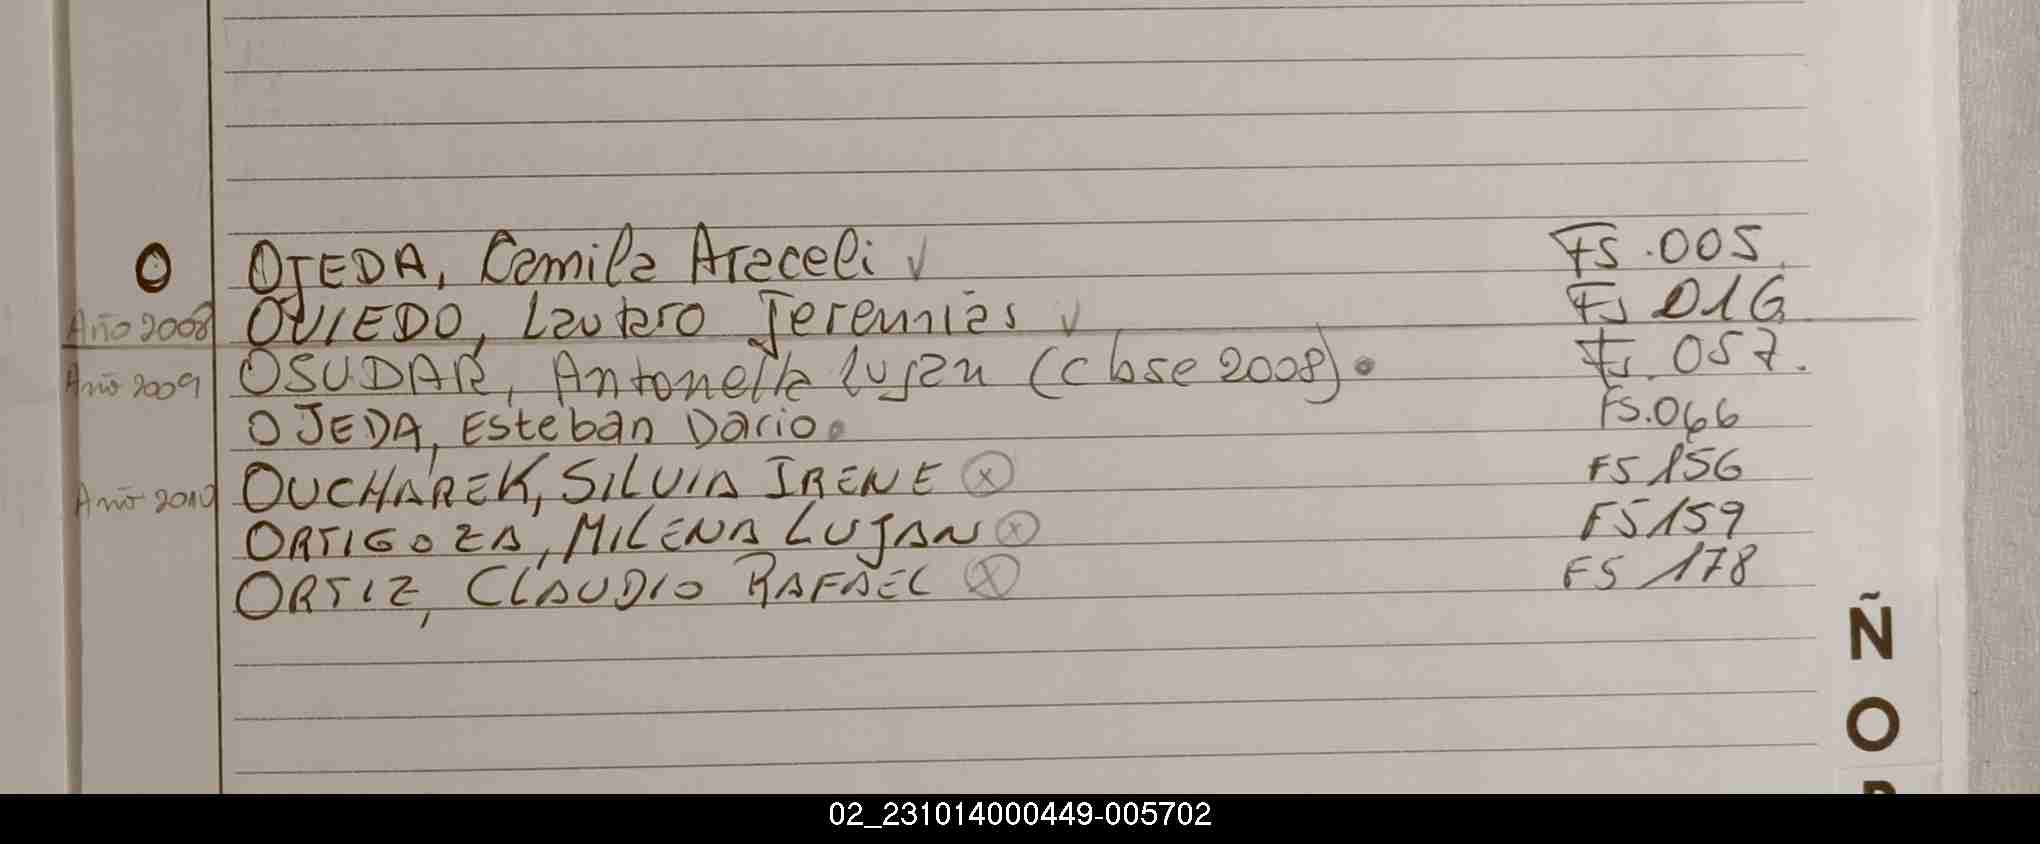 O OJEDA, Camila Araceli ✓ FS.005
Año 2008 OVIEDO, Lautaro Jeremías ✓ Fs 016
Año 2009 OSUDAR, Antonella Lujan (clase 2008). Fs. 057.
OJEDA, Esteban Dario. FS.066
Año 2010 OUCHAREK, SILVIA IRENE ⓧ FS 156
ORTIGOZA, MILENA LUJAN ⓧ FS 159
ORTIZ, CLAUDIO RAFAEL ⓧ FS 178
Ñ
O
02_231014000449-005702